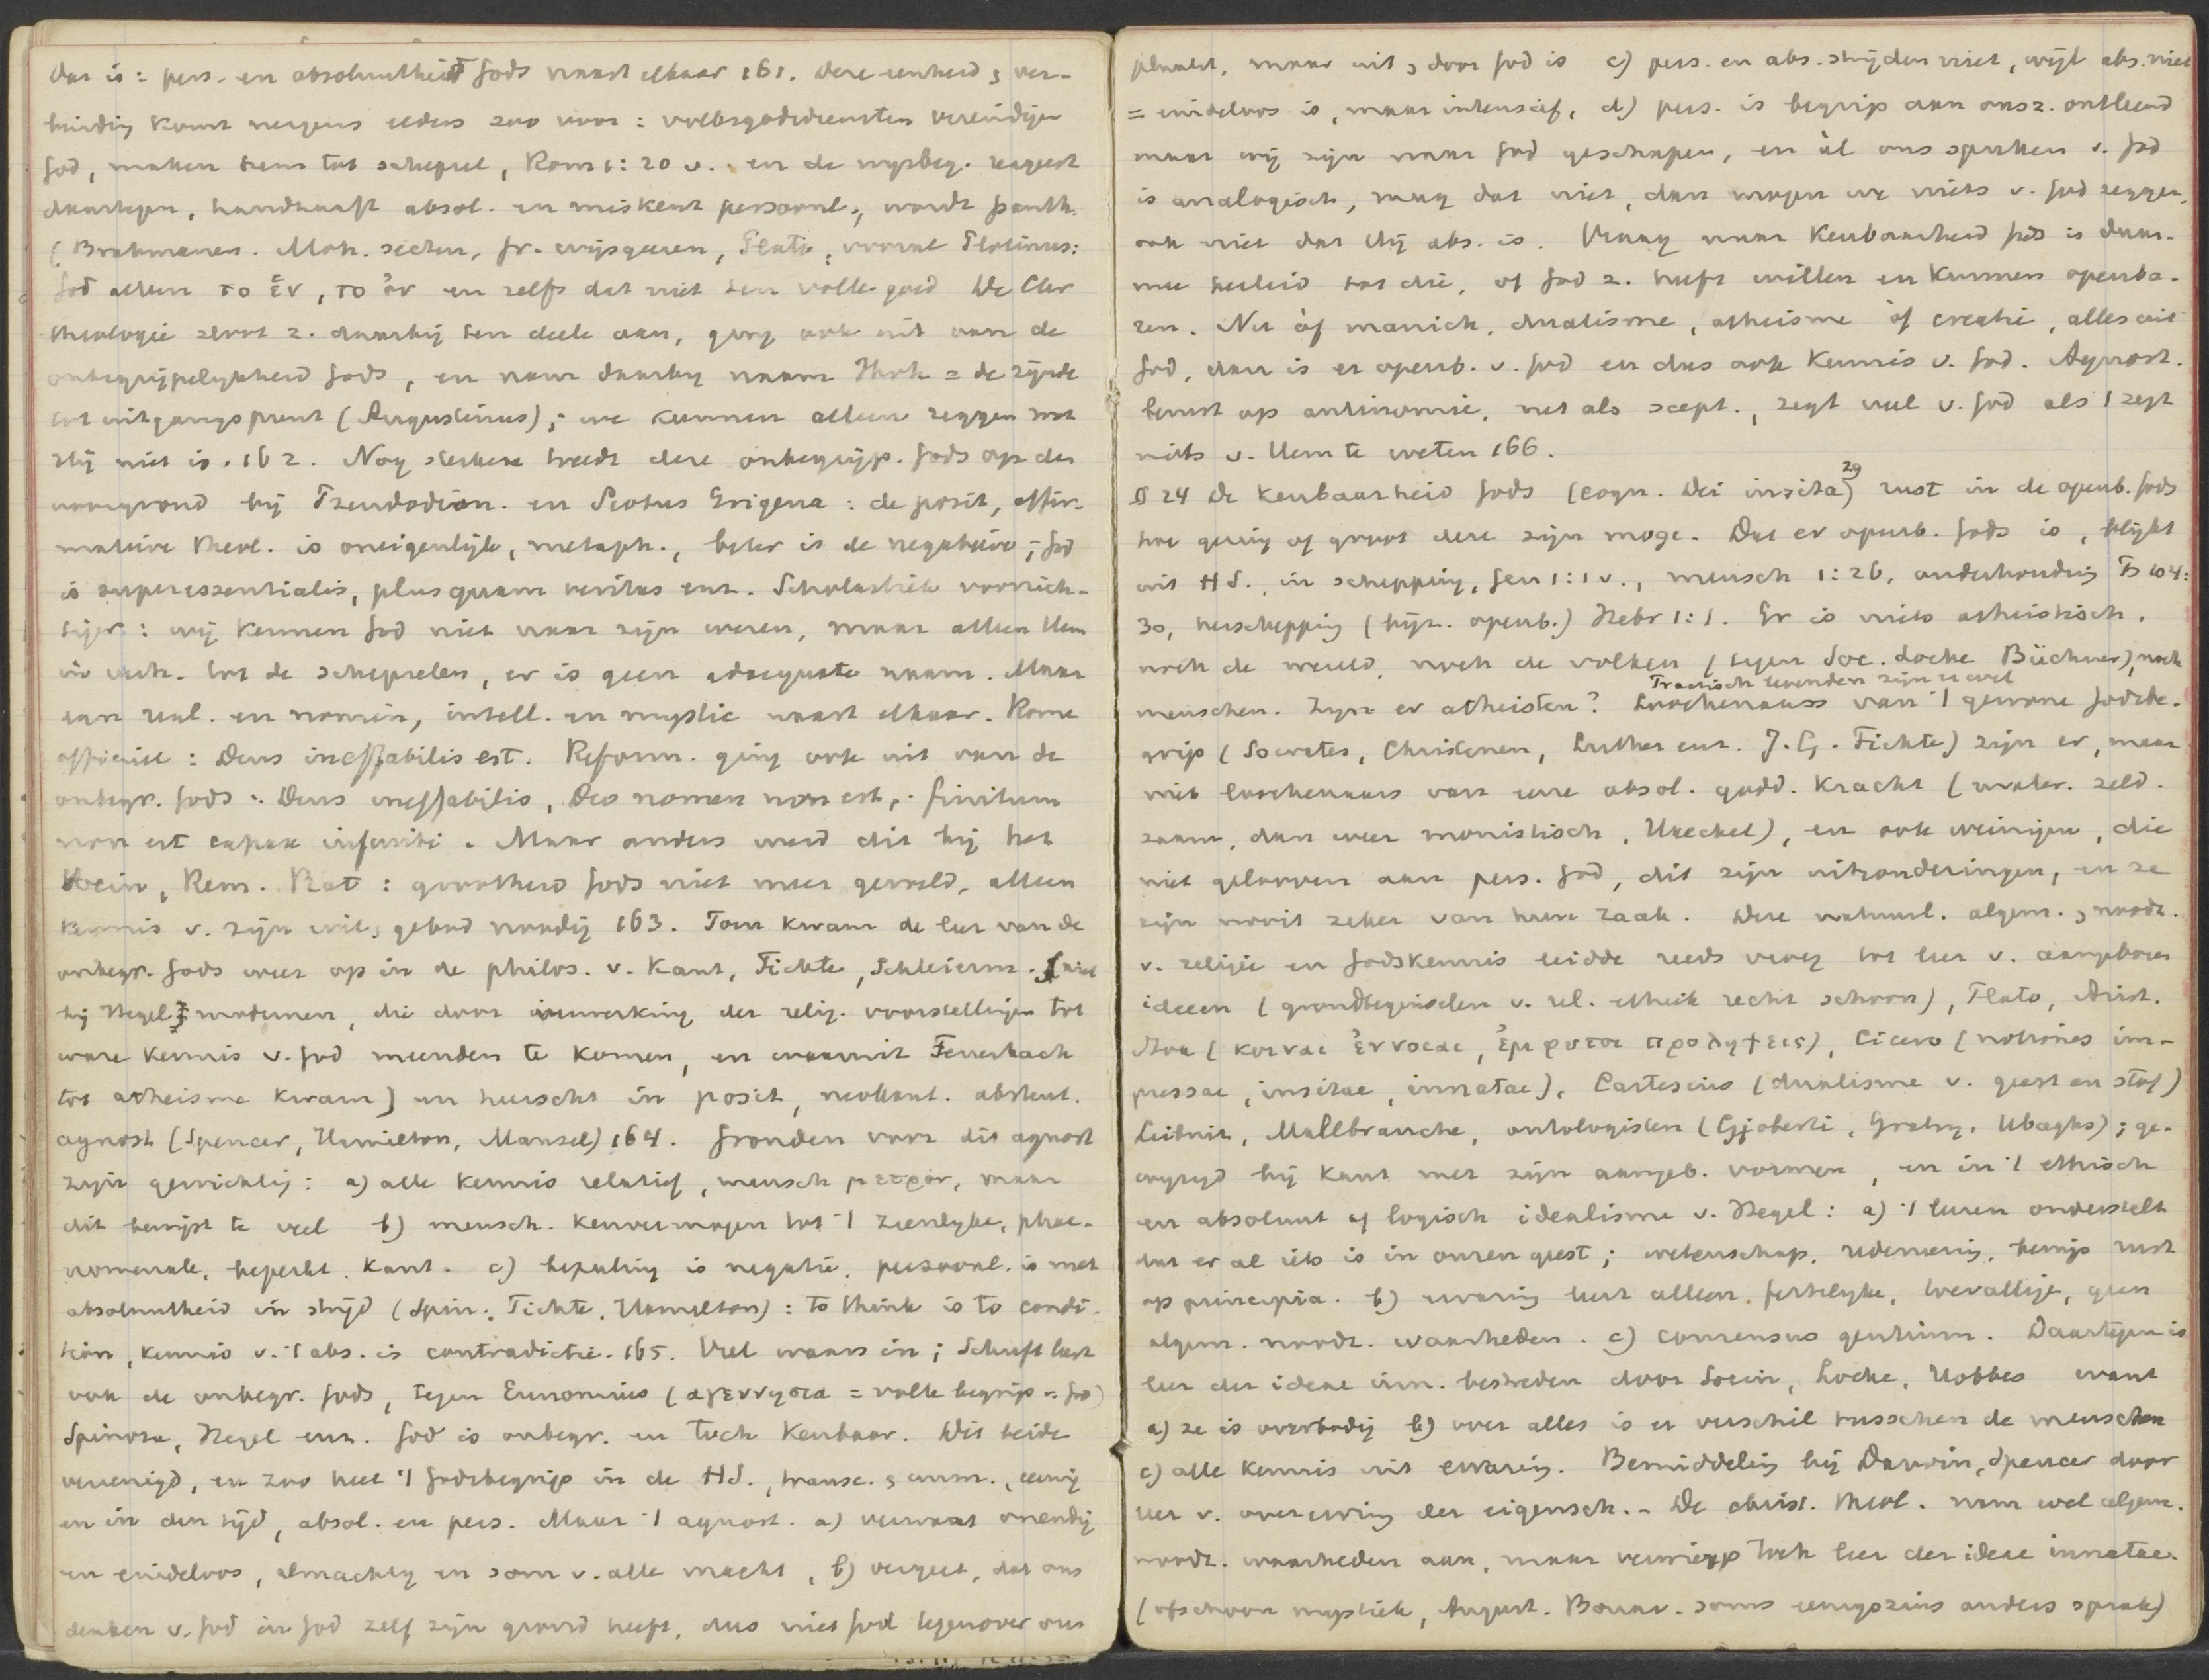 dat is: pers. en absoluutheid Gods naast elkaar 161. Deze eenheid, ver-
binding komt nergens elders zoo voor: volksgodsdiensten vereindigen
God, maken hem tot schepsel, Rom 1:20 v. en de wijsbeg. reageert
daartegen, handhaaft absol. en miskent persoonl., wordt panth.
(Brahmanen. Moh. secten, Gr. wijsgeeren, Plato, vooral Plotinus:
God alleen το ἕν, το ὄν en zelfs dat niet ten volle goed De Chr
theologie sloot z. daarbij ten deele aan, ging ook uit van de
onbegrijpelijkheid Gods, en nam daarbij naam Jhvh = de zijnde
tot uitgangspunt (Augustinus); we kunnen alleen zeggen wat
Hij niet is. 162. Nog sterker treedt deze onbegrijp. Gods op den
voorgrond bij Pseudodion. en Scotus Erigena: de posit, affir-
matieve theol. is oneigenlijk, metaph., beter is de negatieve; God
is superessentialis, plusquam veritas enz. Scholastiek voorzich-
tiger: wij kennen God niet naar zijn wezen, maar alleen Hem
in verh. tot de schepselen, er is geen adaequate naam. Maar
van real. en nomin, intell. en mystic naast elkaar. Rome
officieel: Deus ineffabilis est. Reform. ging ook uit van de
onbegr. Gods: Deus ineffabilis, Deo nomen non est, finitum
non est capax infiniti. Maar anders werd dit bij het
Socin, Rem. Rat: grootheid Gods niet meer gevoeld, alleen
kennis v. zijn wil, gebod noodig 163. Toen kwam de leer van de
onbegr. Gods weer op in de philos. v. Kant, Fichte, Schleierm. [niet
bij Hegel, modernen, die door inwerking der relig. voorstellingen tot
ware kennis v. God meenden te komen, en waaruit Feuerbach
tot atheisme kwam] en heerscht in posit, neokant. abstent.
agnost (Spencer, Hamilton, Mansel) 164. Gronden voor dit agnost
zijn gewichtig: a) alle kennis relatief, mensch μετρον, maar
dit bewijst te veel b) mensch. kenvermogen tot 't zienlijke, phae-
nomenale, beperkt. Kant. c) bepaling is negatie, persoonl. is met
absoluutheid in strijd (Spin., Fichte, Hamilton): to think is to condi-
tion, kennis v. 't abs. is contradictie. 165. Veel waars in; Schrift leert
ook de onbegr. Gods, tegen Eunomius (αγεννησια = volle begrip v. God)
Spinoza, Hegel enz. God is onbegr. en toch kenbaar. Dit beide
vereenigd, en zoo heel 't Godsbegrip in de HS., transc. & imm., eeuwig
en in den tijd, absol. en pers. Maar 't agnost. a) verwart oneindig
en eindeloos, almachtig en som v. alle macht, b) vergeet, dat ons
denken v. God in God zelf zijn grond heeft, dus niet God tegenover ons
plaatst, maar uit & door God is c) pers. en abs. strijden niet, wijl abs. niet
= eindeloos is, maar intensief, d) pers. is begrip aan ons z. ontleend
maar wij zijn naar God geschapen, en àl ons spreken v. God
is analogisch, mag dat niet, dan mogen we niets v. God zeggen,
ook niet dat Hij abs. is. Vraag naar kenbaarheid Gods is daar-
mee herleid tot die, of God z. heeft willen en kunnen openba-
ren. Nu òf manich, dualisme, atheisme òf creatie, alles uit
God, dan is er openb. v. God en dus ook kennis v. God. Agnost.
berust op antinomie, net als scept., zegt veel v. God als 't zegt
niets v. Hem te weten 166.
§ 24 De kenbaarheid Gods (cogn. Dei insita) 29 rust in de openb. Gods
hoe gering of groot deze zijn moge. Dat er openb. Gods is, blijkt
uit HS., in schepping, Gen 1:1 v., mensch 1:26, onderhouding Ps 104:
30, herschepping (bijz. openb.) Hebr 1:1. Er is niets atheistisch,
noch de wereld, noch de volken (tegen Soc. Locke Büchner), noch
Practisch levenden zijn er wel
menschen. Zijn er atheisten? Loochenaars van 't gewone Godsbe-
grip (Socrates, Christenen, Luther enz. J. G. Fichte) zijn er, maar
niet loochenaars van eene absol. godd. kracht (mater. zeld-
zaam, dan weer monistisch, Haeckel), en ook weinigen, die
niet gelooven aan pers. God, dit zijn uitzonderingen, en ze
zijn nooit zeker van hun zaak. Deze natuurl. algem. & noodz.
v. religie en Godskennis leidde reeds vroeg tot leer v. aangeboren
ideeen (grondbeginselen v. rel. ethiek recht schoon), Plato, Arist.
Stoa (κοιναι ἐννοιαι, ἐμφυτοι προληψεις), Cicero (notiones im-
pressae, insitae, innatae), Cartesius (dualisme v. geest en stof)
Leibnitz, Mallbranche, ontologisten (Gioberti, Gratry, Ubaghs); ge-
wijzigd bij Kant met zijn aangeb. vormen, en in 't ethisch
en absoluut of logisch idealisme v. Hegel: a) 't leeren onderstelt
dat er al iets is in onzen geest; wetenschap, redeneering, bewijs rust
op principia. b) ervaring leert alleen feitelijke, toevallige, geen
algem. noodz. waarheden. c) consensus gentium. Daartegen is
leer der ideae inn. bestreden door Socin, Locke, Hobbes want
a) ze is overbodig b) over alles is er verschil tusschen de menschen
c) alle kennis uit ervaring. Bemiddeling bij Darwin, Spencer door
leer v. overerving der eigensch. - De christ. theol. nam wel algem.
noodz. waarheden aan, maar verwierp toch leer der ideae innatae.
(ofschoon mystiek, August. Bonav. soms eenigszins anders sprak)